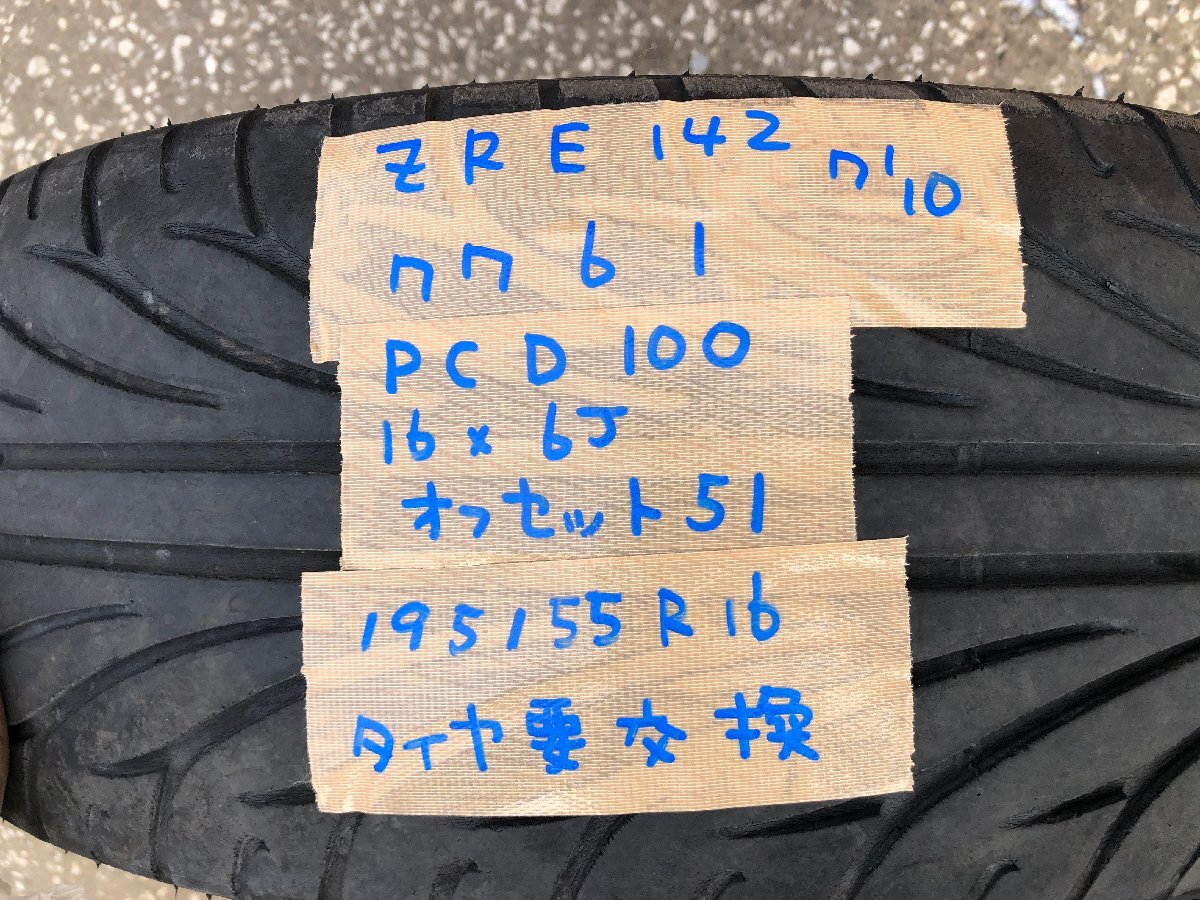 ZRE142 7/10
7761
PCD100
16×6J
オフセット51
195/55R16
タイヤ要交換